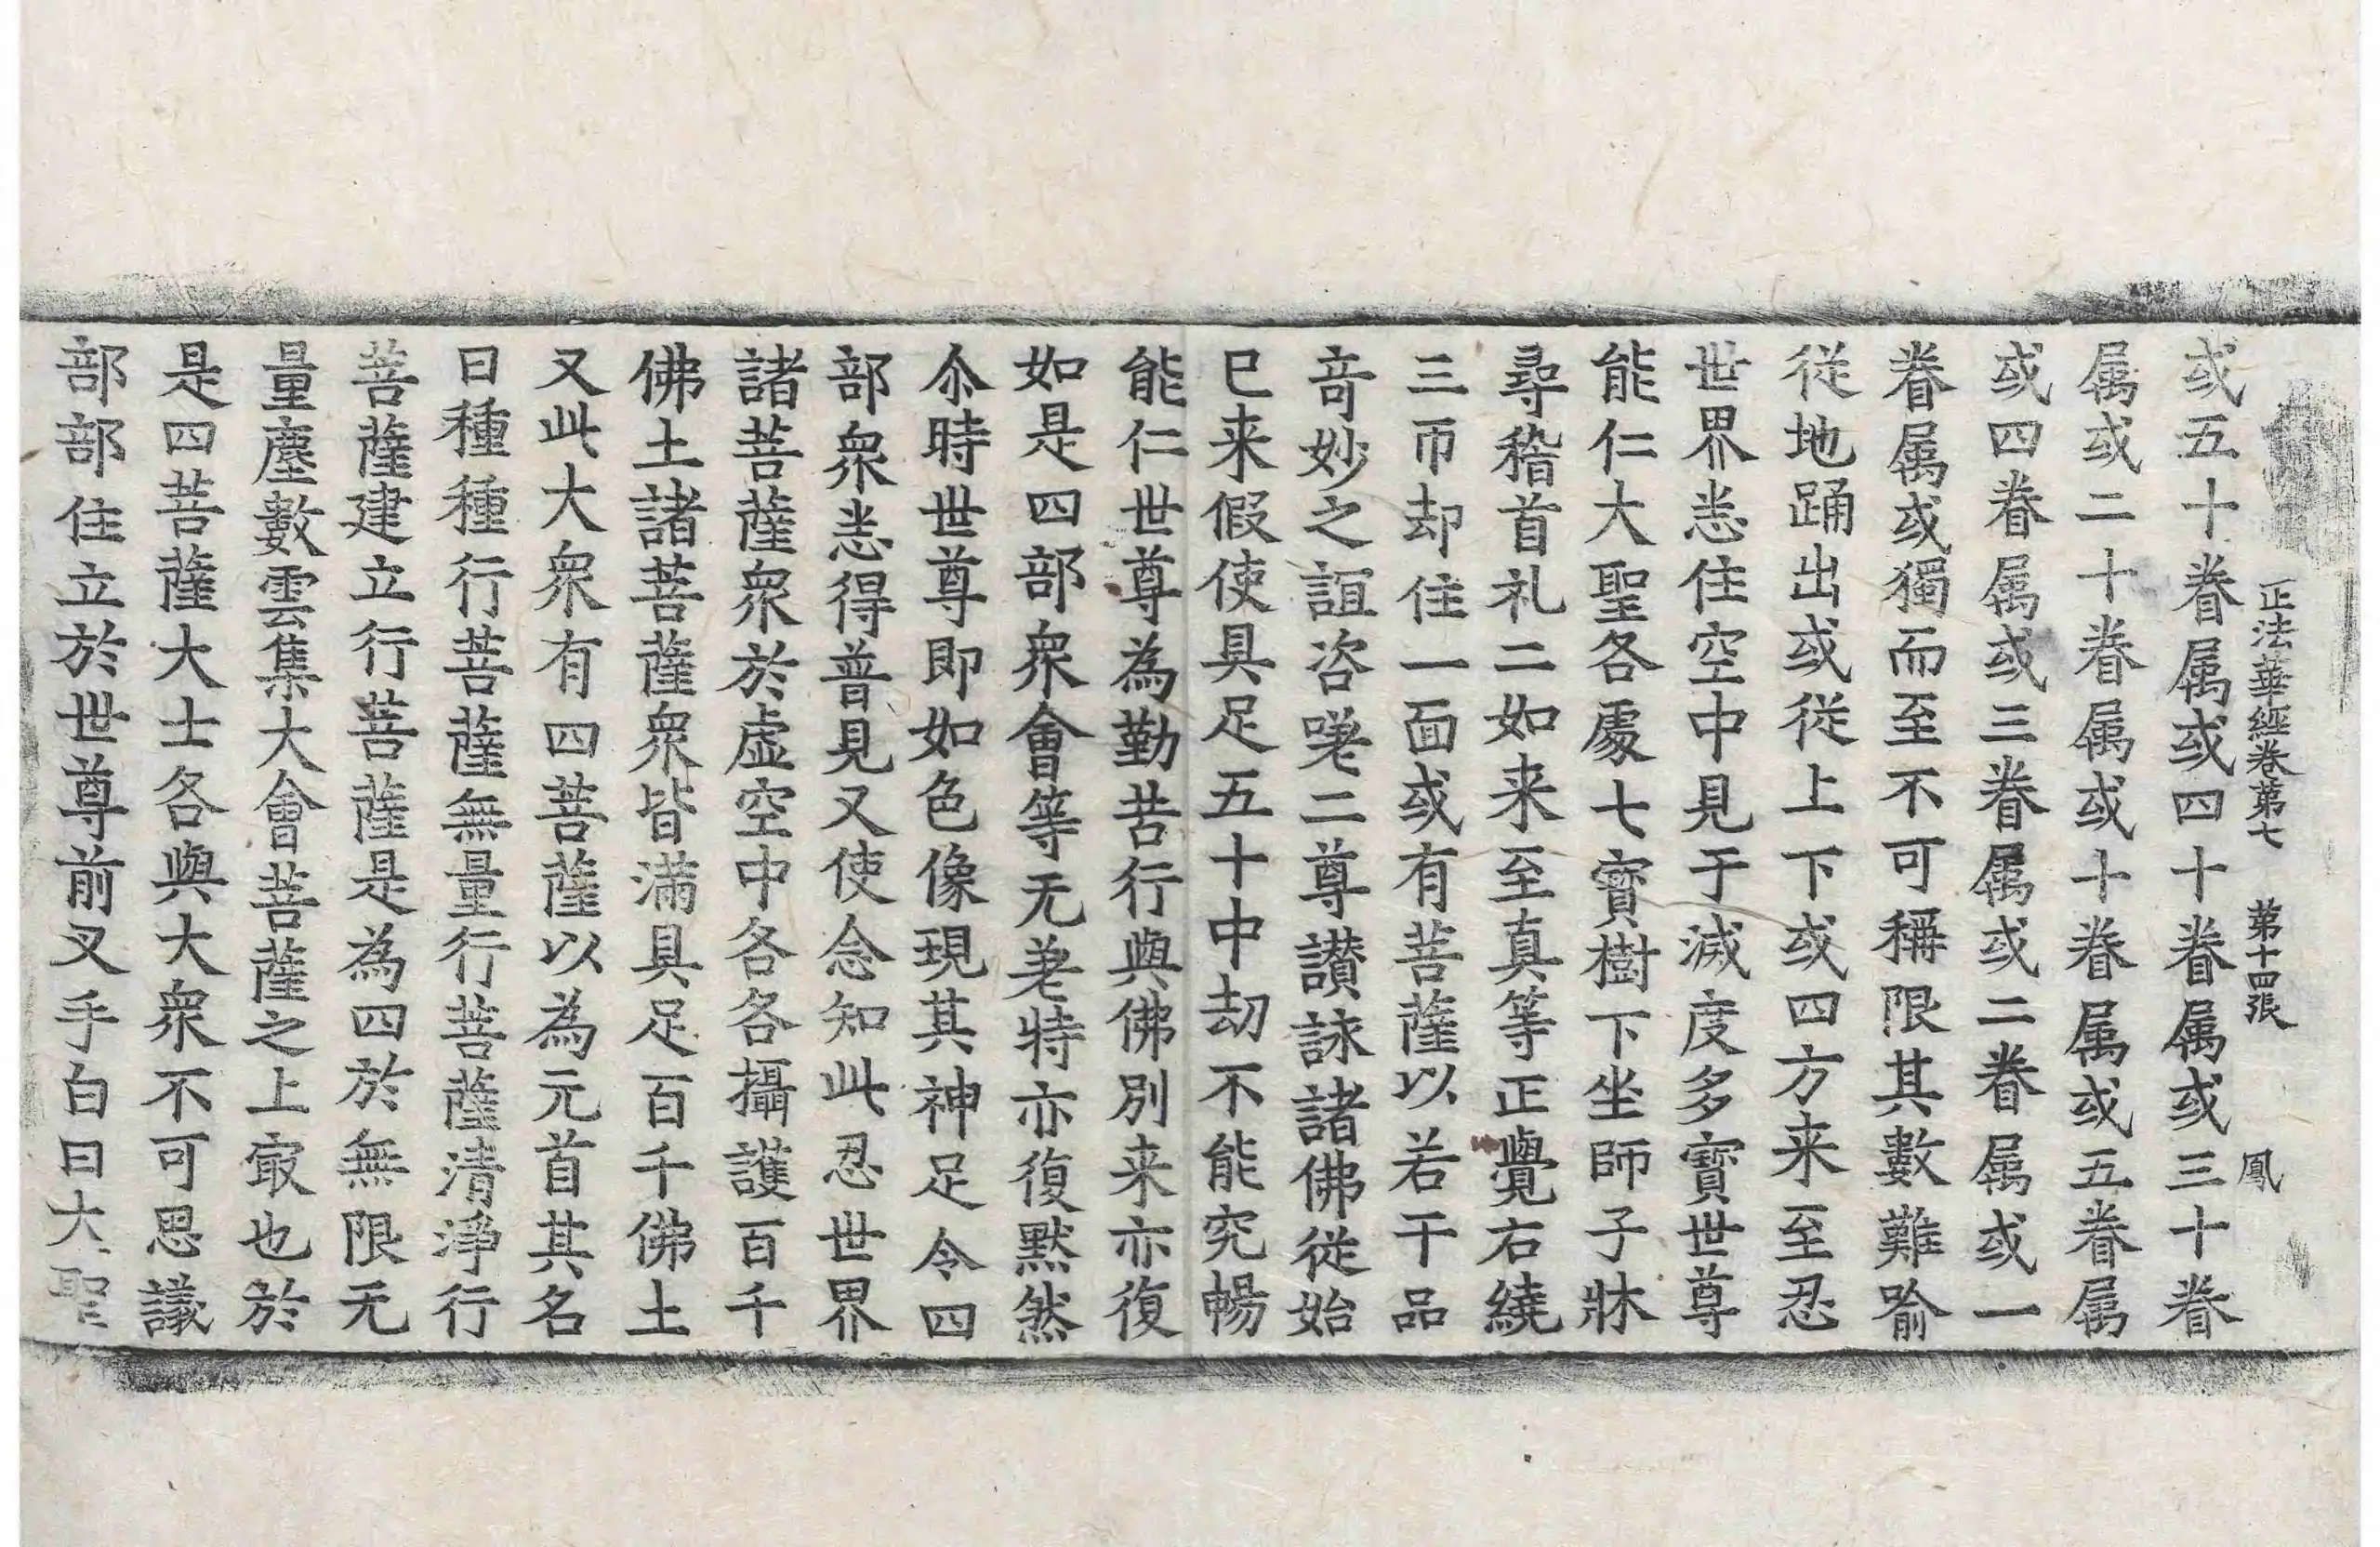 正法華經卷第七　第十四張　鳳
或五十眷属或四十眷属或三十眷
属或二十眷属或十眷属或五眷属
或四眷属或三眷属或二眷属或一
眷属或獨而至不可稱限其數難喻
從地踊出或從上下或四方来至忍
世界悉住空中見于滅度多寶世尊
能仁大聖各處七寶樹下坐師子牀
尋稽首礼二如来至真等正覺右繞
三帀却住一面或有菩薩以若干品
竒妙之誼咨嗟二尊讃詠諸佛從始
已来假使具足五十中劫不能究暢
能仁世尊為勤苦行與佛別来亦復
如是四部衆會等无差特亦復黙然
尒時世尊即如色像現其神足令四
部衆悉得普見又使念知此忍世界
諸菩薩衆於虛空中各各攝護百千
佛土諸菩薩衆皆滿具足百千佛土
又此大衆有四菩薩以為元首其名
曰種種行菩薩無量行菩薩清淨行
菩薩建立行菩薩是為四於無限无
量塵數雲集大會菩薩之上㝡也於
是四菩薩大士各與大衆不可思議
部部住立於世尊前叉手白曰大聖